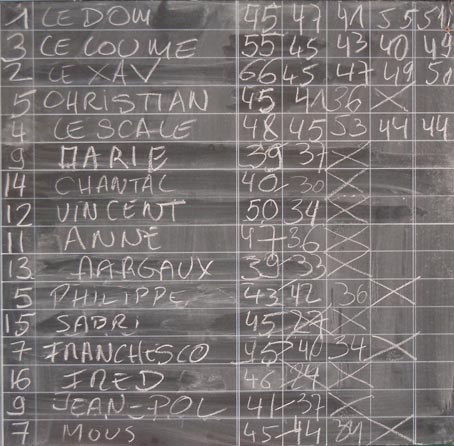 1 LE DOM 45 47 41 55 51
3 LE LOUME 55 45 43 40 49
2 LE XAV 66 45 47 49 50
5 CHRISTIAN 45 41 36 X
4 LE SCALE 48 45 53 44 44
9 MARIE 39 37 X
14 CHANTAL 40 30 X
12 VINCENT 50 34 X
11 ANNE 47 36 X
13 MARGAUX 39 33 X
5 PHILIPPE 43 42 36 X
15 SABRI 45 27 X
7 FRANCHESCO 45 40 34 X
16 FRED 46 24 X
9 JEAN-POL 41 37 X
7 MOUS 45 44 34 X